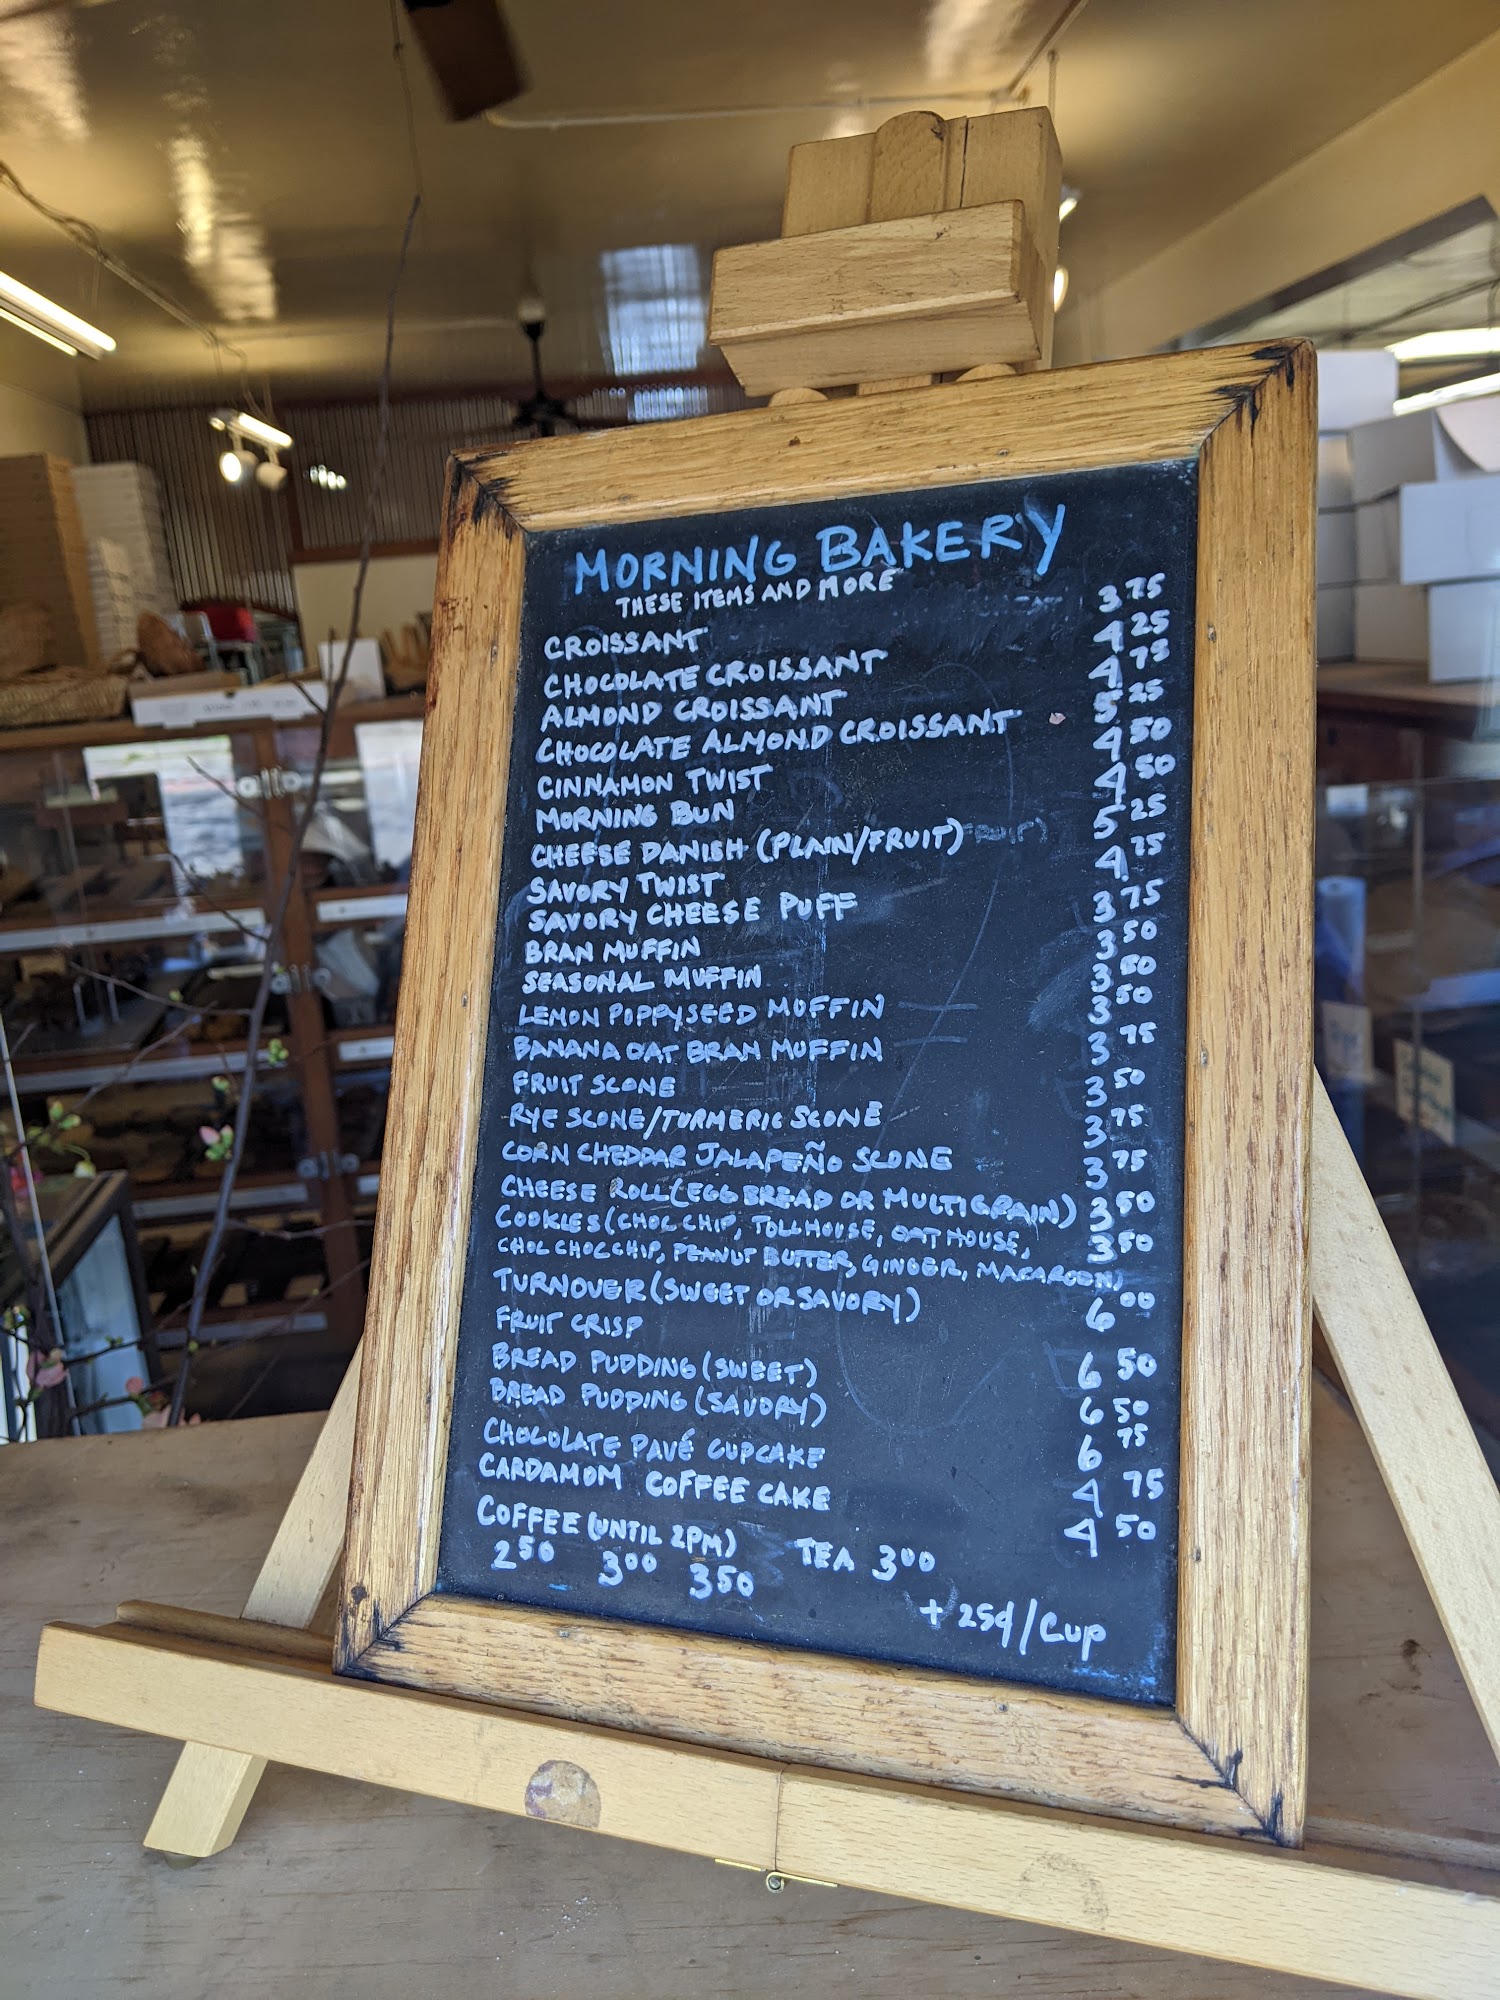 MORNING BAKERY
THESE ITEMS AND MORE
CROISSANT 3 75
CHOCOLATE CROISSANT 4 25
ALMOND CROISSANT 4 75
CHOCOLATE ALMOND CROISSANT 5 25
CINNAMON TWIST 4 50
MORNING BUN 4 50
CHEESE DANISH (PLAIN/FRUIT) 5 25
SAVORY TWIST 4 75
SAVORY CHEESE PUFF 3 75
BRAN MUFFIN 3 50
SEASONAL MUFFIN 3 50
LEMON POPPYSEED MUFFIN 3 50
BANANA OAT BRAN MUFFIN 3 75
FRUIT SCONE 3 50
RYE SCONE/TURMERIC SCONE 3 75
CORN CHEDDAR JALAPEÑO SCONE 3 75
CHEESE ROLL (EGG BREAD OR MULTIGRAIN) 3 50
COOKIES (CHOC CHIP, TOLLHOUSE, OAT HOUSE, 3 50
CHOC CHOC CHIP, PEANUT BUTTER, GINGER, MACAROON)
TURNOVER (SWEET OR SAVORY) 6 00
FRUIT CRISP 6 50
BREAD PUDDING (SWEET) 6 50
BREAD PUDDING (SAVORY) 6 75
CHOCOLATE PAVÉ CUPCAKE 4 75
CARDAMOM COFFEE CAKE 4 50
COFFEE (UNTIL 2PM) TEA 3 00
2 50 3 00 3 50
+ 25¢/CUP